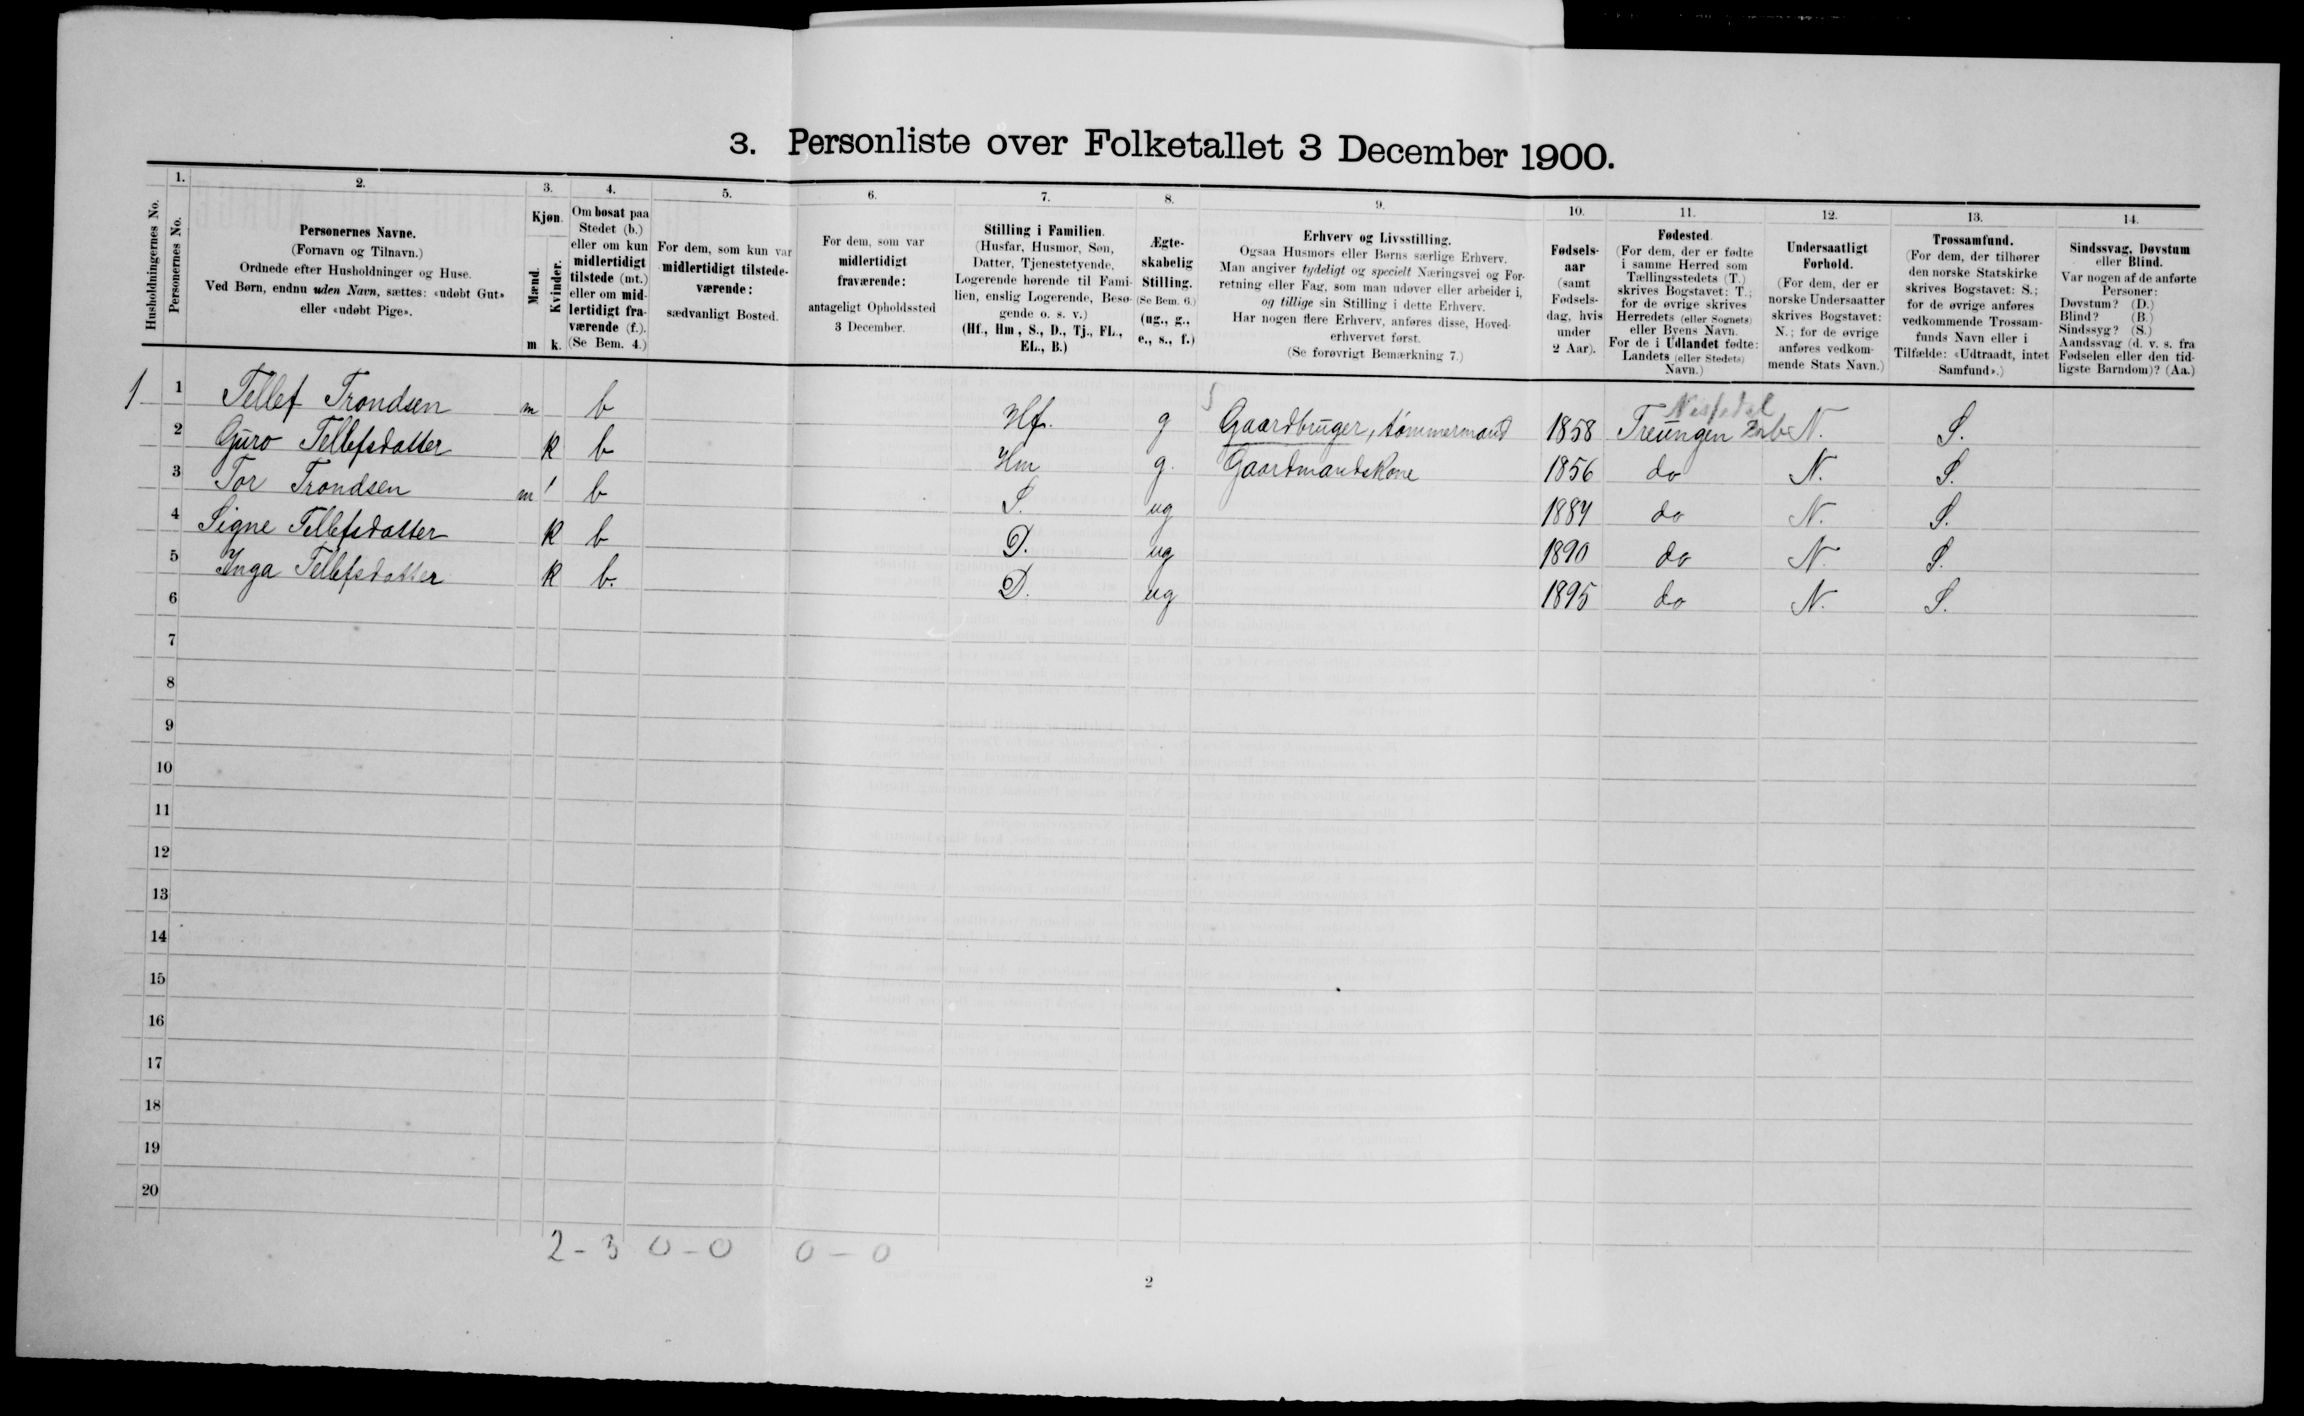 3. Personliste over Folketallet 3 December 1900.
1. 2. 3. 4. 5. 6. 7. 8. 9. 10. 11. 12. 13. 14.
Husholdningernes No.
Personernes No.
Personernes Navne.
(Fornavn og Tilnavn.)
Ordnede efter Husholdninger og Huse.
Ved Børn, endnu uden Navn, sættes: «udøbt Gut»
eller «udøbt Pige».
Kjøn.
Mænd.
Kvinder.
m. k.
Om bosat paa
Stedet (b.)
eller om kun
midlertidigt
tilstede (mt.)
eller om mid-
lertidigt fra-
værende (f.).
(Se Bem. 4.)
For dem, som kun var
midlertidigt tilstede-
værende:
sædvanligt Bosted.
For dem, som var
midlertidigt
fraværende:
antageligt Opholdssted
3 December.
Stilling i Familien.
(Husfar, Husmor, Søn,
Datter, Tjenestetyende,
Logerende hørende til Fami-
lien, enslig Logerende, Besø-
gende o. s. v.)
(Hf., Hm., S., D., Tj., FL.,
EL., B.)
Ægte-
skabelig
Stilling.
(Se Bem. 6.)
(ug., g.,
e., s., f.)
Erhverv og Livsstilling.
Ogsaa Husmors eller Børns særlige Erhverv.
Man angiver tydeligt og specielt Næringsvei og For-
retning eller Fag, som man udøver eller arbeider i,
og tillige sin Stilling i dette Erhverv.
Har nogen flere Erhverv, anføres disse, Hoved-
erhvervet først.
(Se forøvrigt Bemærkning 7.)
Fødsels-
aar
(samt
Fødsels-
dag, hvis
under
2 Aar).
Fødested.
(For dem, der er fødte
i samme Herred som
Tællingsstedets (T.)
skrives Bogstavet: T.;
for de øvrige skrives
Herredets (eller Sognets)
eller Byens Navn.
For de i Udlandet fødte:
Landets (eller Stedets)
Navn.)
Undersaatligt
Forhold.
(For dem, der er
norske Undersaatter
skrives Bogstavet:
N.; for de øvrige
anføres vedkom-
mende Stats Navn.)
Trossamfund.
(For dem, der tilhører
den norske Statskirke
skrives Bogstavet: S.;
for de øvrige anføres
vedkommende Trossam-
funds Navn eller i
Tilfælde: «Udtraadt, intet
Samfund».)
Sindssvag, Døvstum
eller Blind.
Var nogen af de anførte
Personer:
Døvstum? (D.)
Blind? (B.)
Sindssyg? (S.)
Aandssvag (d. v. s. fra
Fødselen eller den tid-
ligste Barndom)? (Aa.)
Nissedal
1 1 Tellef Trondsen m b Hf. g Gaardbruger, tømmermand 1858 Treungen N. S.
2 Guro Tellefsdatter k b Hm g. Gaardmandskone 1856 do N. S.
3 Tor Trondsen m b S. ug 1884 do N. S.
4 Signe Tellefsdatter k b D. ug 1890 do N. S.
5 Inga Tellefsdatter k b. D. ug 1895 do N. S.
6
7
8
9
10
11
12
13
14
15
16
17
18
19
20
2 - 3 0 - 0 0 - 0
2